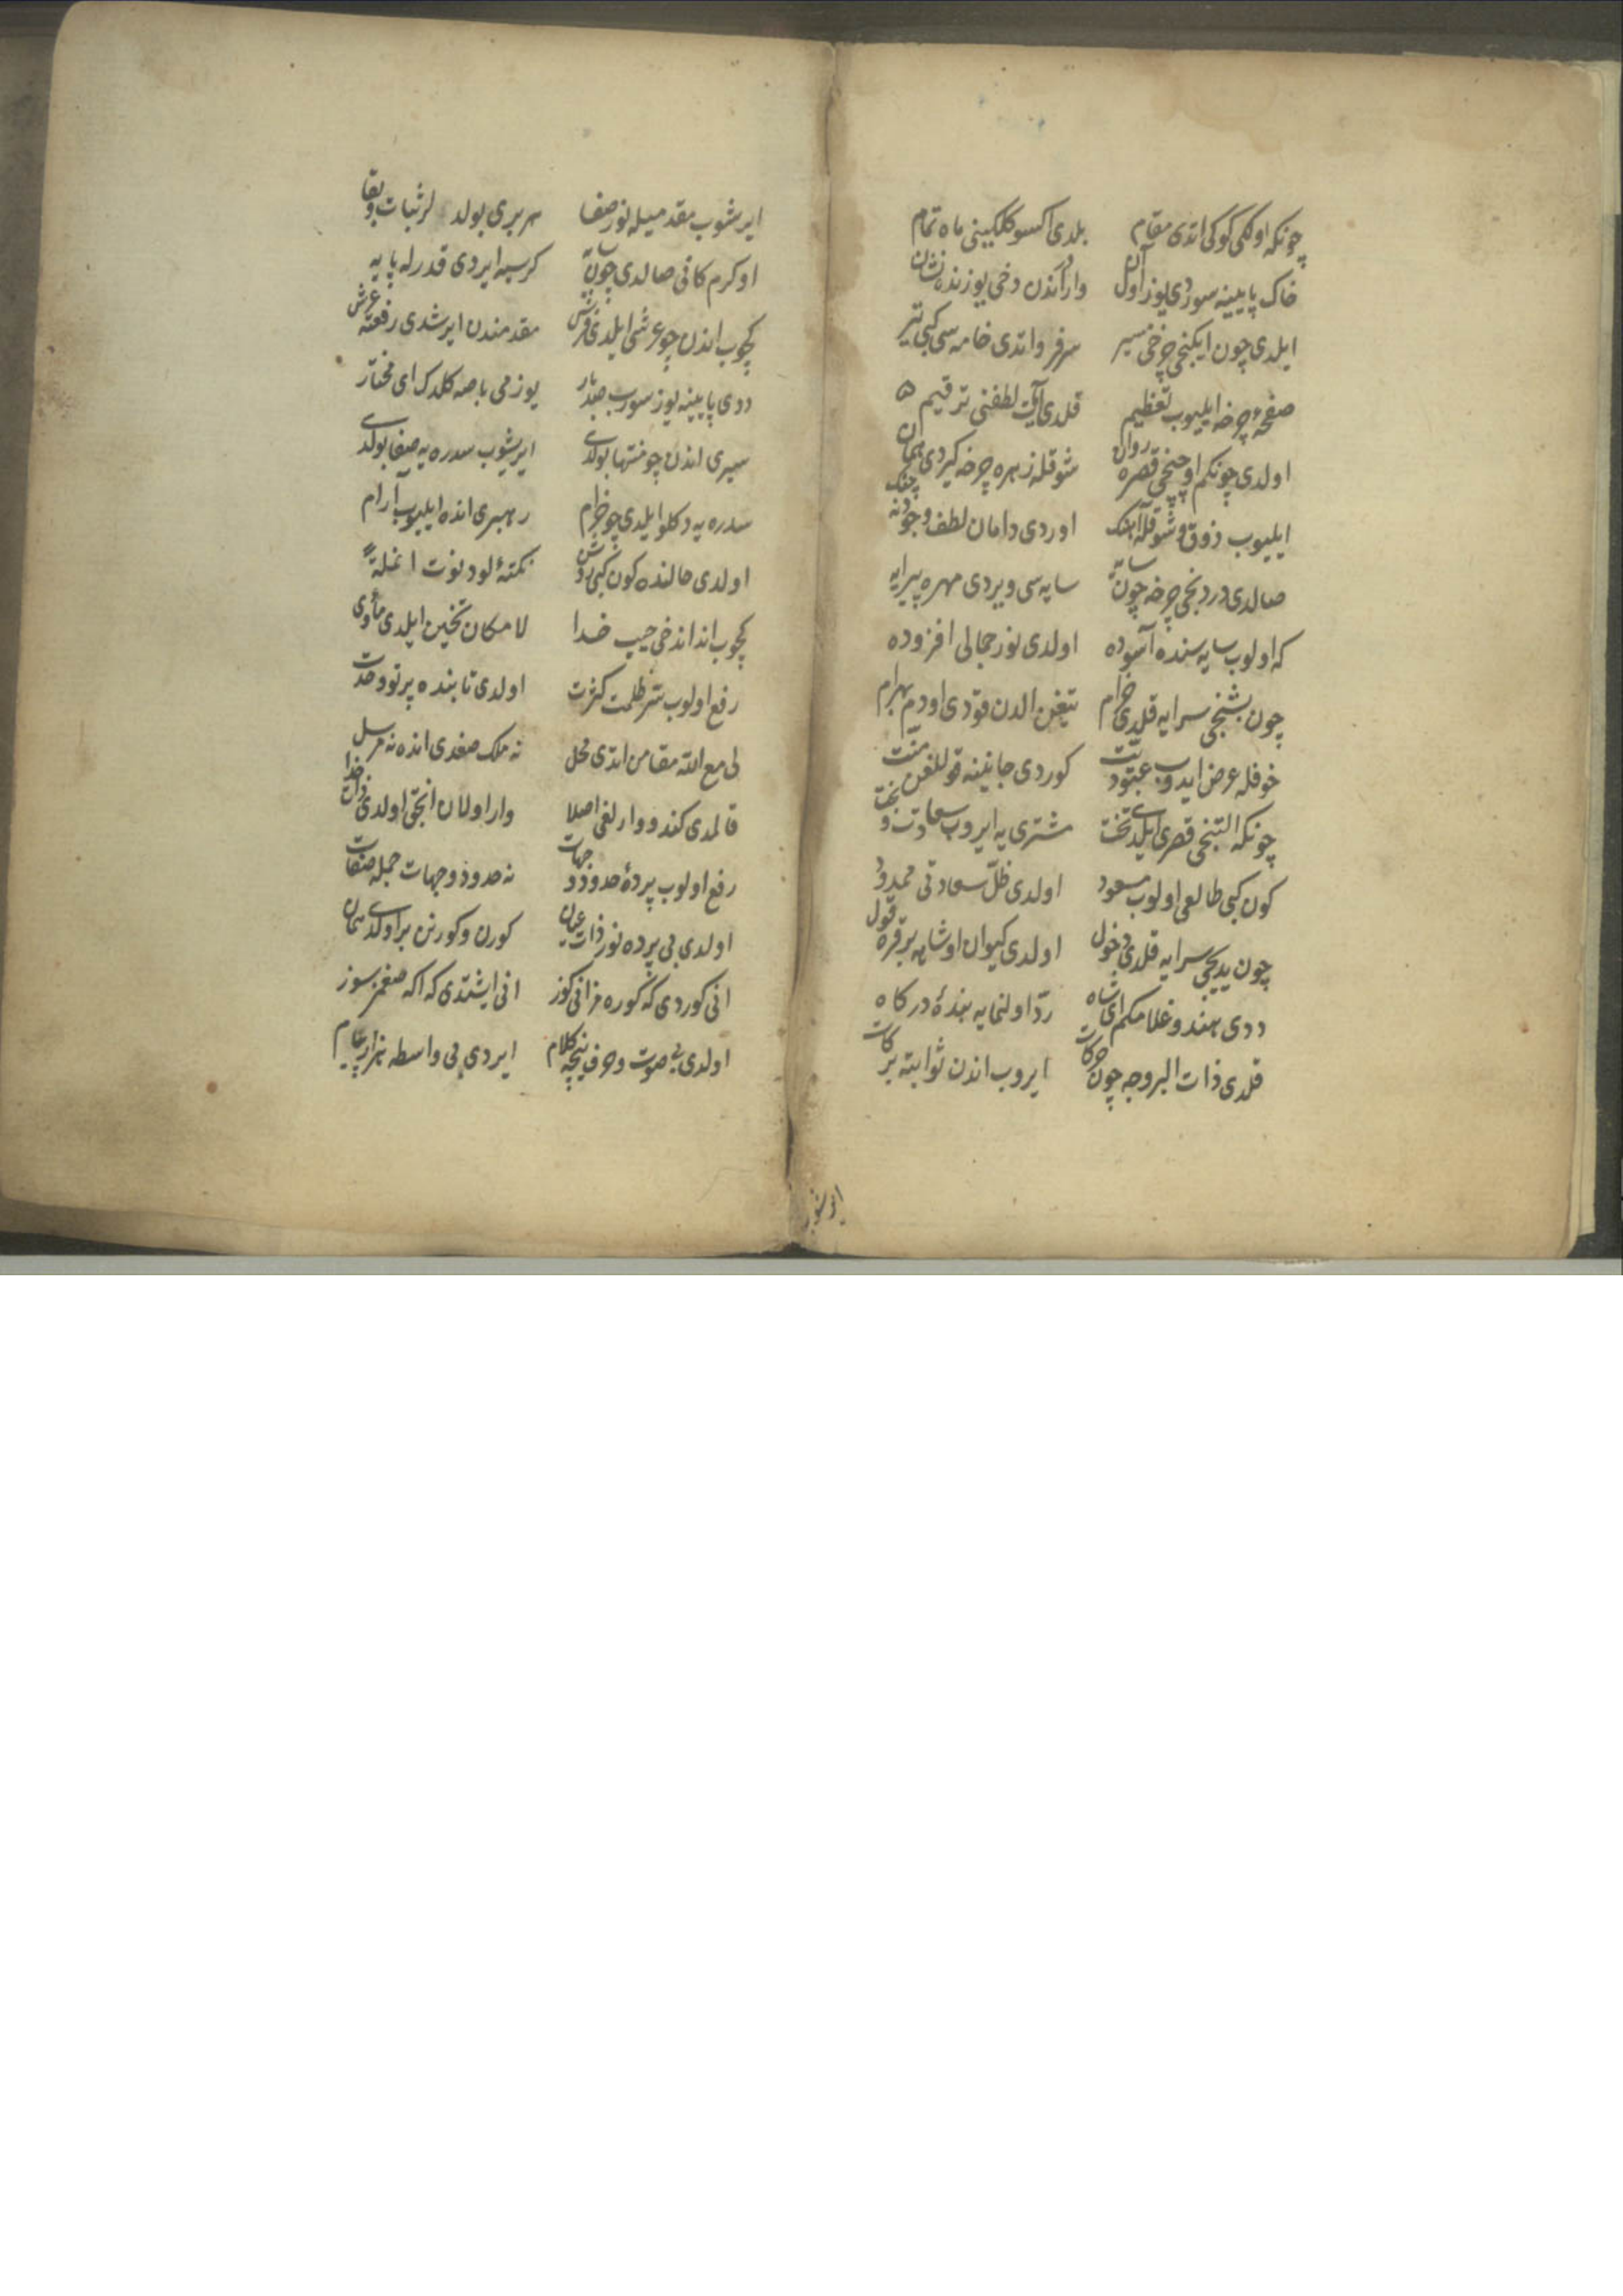 چونکه اولکی کوکی اتدی مقام بلدی اکسوکلکینی ماه تمام
خاک پایینه سوردی یوز اول آن وار اندن دخی یوزنده نشان
ایلدی چون ایکنجی چرخی سیر سرفرو اتدی خامه سی کبی تیر
صفحهٔ چرخه ایلیوب تعظیم قلدی آیت لطفنی ترقیم
اولدی چونکم اوچنجی قصره روان شوقله زهره چرخه کیردی همان
ایلیوب ذوق و شوقله آهنک اوردی دامان لطف وجودنه چنک
صالدی دردنجی چرخه چون سایه سایه سی ویردی مهره پیرایه
که اولوب سایه سنده آسوده اولدی نور جمالی افزوده
چون بشنجی سرایه قلدی خرام تیغن الدن قودی اودم بهرام
خوفله عرض ایدوب عبودیت کوردی جانینه قوللغن منت
چونکه التنجی قصری ایلدی تخت مشتری یه ایروب سعادت و بخت
کون کبی طالعی اولوب مسعود اولدی ظلّ سعادتی ممدود
چون یدنجی سرایه قلدی دخول اولدی کیوان اوشاهه بر قره قول
ددی هندو غلامکم ای شاه ردّ اولنمایه بندهٔ درکاه
قلدی ذات البروجه چون حرکات ایروب اندن ثوابته برکات
ایرشوب
ایرشوب مقدمیله نور صفا هر بری بولدلر ثبات و بقا
او کرم کانی صالدی چون سایه کرسیه ایردی قدرله پایه
کچوب اندن چو عرشی ایلدی فرش مقدمندن ایرشدی رفعته عرش
ددی پایینه یوز سورب صدبار یوزمی باصه کلدک ای مختار
سیری اندن چو منتها بولدی ایریشوب سدره یه صفا بولدی
سدره یه دکلو ایلدی چو خرام رهبری انده ایلیوب آرام
اولدی حالنده کون کبی روشن نکتهٔ لو دنوت انملة
کچوب اندانده‌خی حبیب خدا لامکان تختین ایلدی مأوی
رفع اولوب ستر ظلمت کثرت اولدی تابنده پرتو وحدت
لی مع الله مقامن اتدی محل نه ملک صغدی انده نه مرسل
قالمدی کندو وارلغی اصلا وار اولان انجق اولدی ذات خدا
رفع اولوب پردهٔ حدود و جهات نه حدود و جهات جمله صفات
اولدی بی پرده نور ذات عیان کورن و کورنن بر اولدی همان
انی کوردی که کوره مز انی کوز انی ایشتدی که اکه صغمز سوز
اولدی بی صوت و حرف نیچه کلام ایردی بی واسطه هزار پیام